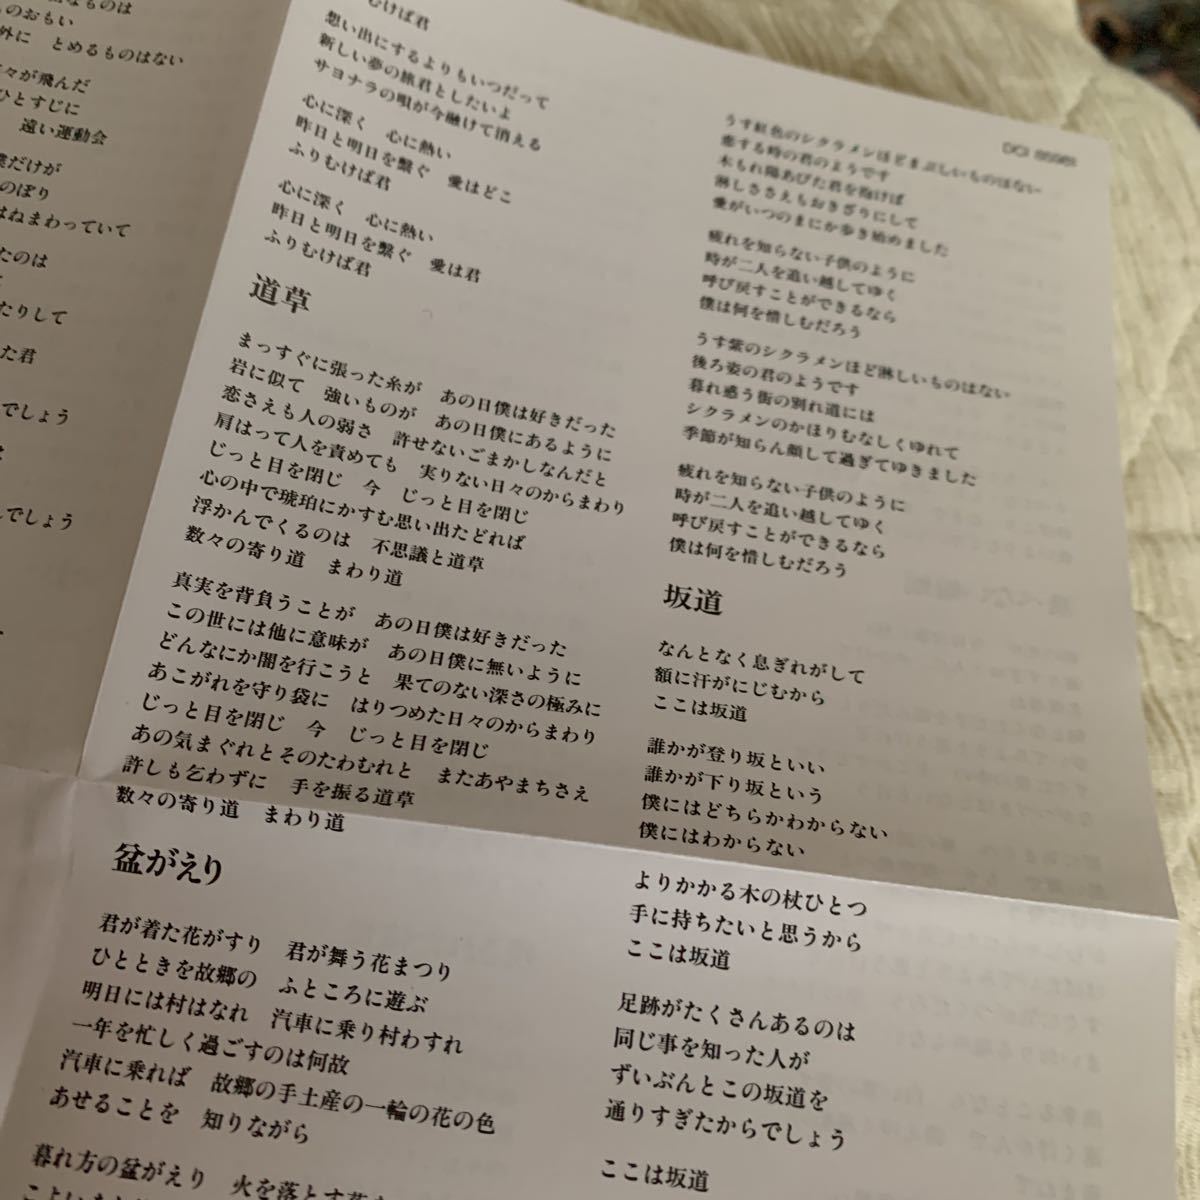 なものは
のおもい
外に　とめるものはない
々が飛んだ
ひとすじに
遠い運動会
僕だけが
のぼり
はねまわっていて
たのは
たりして
た君
でしょう
は
んでしょう
むけば君
想い出にするよりもいつだって
新しい夢の旅君としたいよ
サヨナラの唄が今融けて消える
心に深く　心に熱い
昨日と明日を繋ぐ　愛はどこ
ふりむけば君
心に深く　心に熱い
昨日と明日を繋ぐ　愛は君
ふりむけば君
道草
まっすぐに張った糸が　あの日僕は好きだった
岩に似て　強いものが　あの日僕にあるように
恋さえも人の弱さ　許せないごまかしなんだと
肩はって人を責めても　実りない日々のからまわり
じっと目を閉じ　今　じっと目を閉じ
心の中で琥珀にかすむ思い出たどれば
浮かんでくるのは　不思議と道草
数々の寄り道　まわり道
真実を背負うことが　あの日僕は好きだった
この世には他に意味が　あの日僕に無いように
どんなにか闇を行こうと　果てのない深さの極みに
あこがれを守り袋に　はりつめた日々のからまわり
じっと目を閉じ　今　じっと目を閉じ
あの気まぐれとそのたわむれと　またあやまちさえ
許しも乞わずに　手を振る道草
数々の寄り道　まわり道
盆がえり
君が着た花がすり　君が舞う花まつり
ひとときを故郷の　ふところに遊ぶ
明日には村はなれ　汽車に乗り村わすれ
一年を忙しく過ごすのは何故
汽車に乗れば　故郷の手土産の一輪の花の色
あせることを　知りながら
暮れ方の盆がえり　火を落とす花
DCI
うす紅色のシクラメンほどまぶしいものはない
恋する時の君のようです
木もれ陽あびた君を抱けば
淋しささえもおきざりにして
愛がいつのまにか歩き始めました
疲れを知らない子供のように
時が二人を追い越してゆく
呼び戻すことができるなら
僕は何を惜しむだろう
うす紫のシクラメンほど淋しいものはない
後ろ姿の君のようです
暮れ惑う街の別れ道には
シクラメンのかほりむなしくゆれて
季節が知らん顔して過ぎてゆきました
疲れを知らない子供のように
時が二人を追い越してゆく
呼び戻すことができるなら
僕は何を惜しむだろう
坂道
なんとなく息ぎれがして
額に汗がにじむから
ここは坂道
誰かが登り坂といい
誰かが下り坂という
僕にはどちらかわからない
僕にはわからない
よりかかる木の杖ひとつ
手に持ちたいと思うから
ここは坂道
足跡がたくさんあるのは
同じ事を知った人が
ずいぶんとこの坂道を
通りすぎたからでしょう
ここは坂道